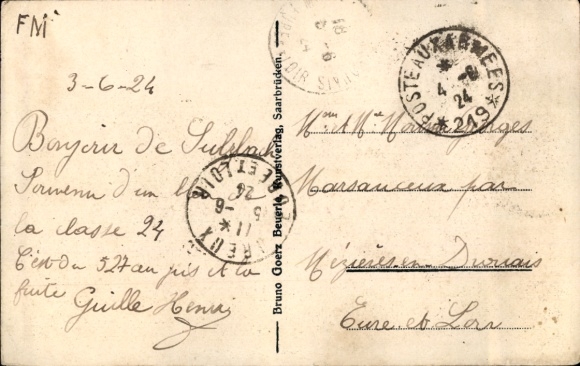 FM
3-6-24
Bonjour de Sulzbach
Souvenir d'un
la classe 24
C'est du 527 au jus et la
fuite Guille Henri
Bruno Goetz Beuerle, Kunstverlag, Saarbrücken.
POSTE AUX ARMEES
4 -6
24
*219*
DREUX
EURE ET LOIR
11 *
5 -6
24
LOIR
Mme & Mr Georges
Marsauceux par
Mézières-en-Drouais
Eure et Loir